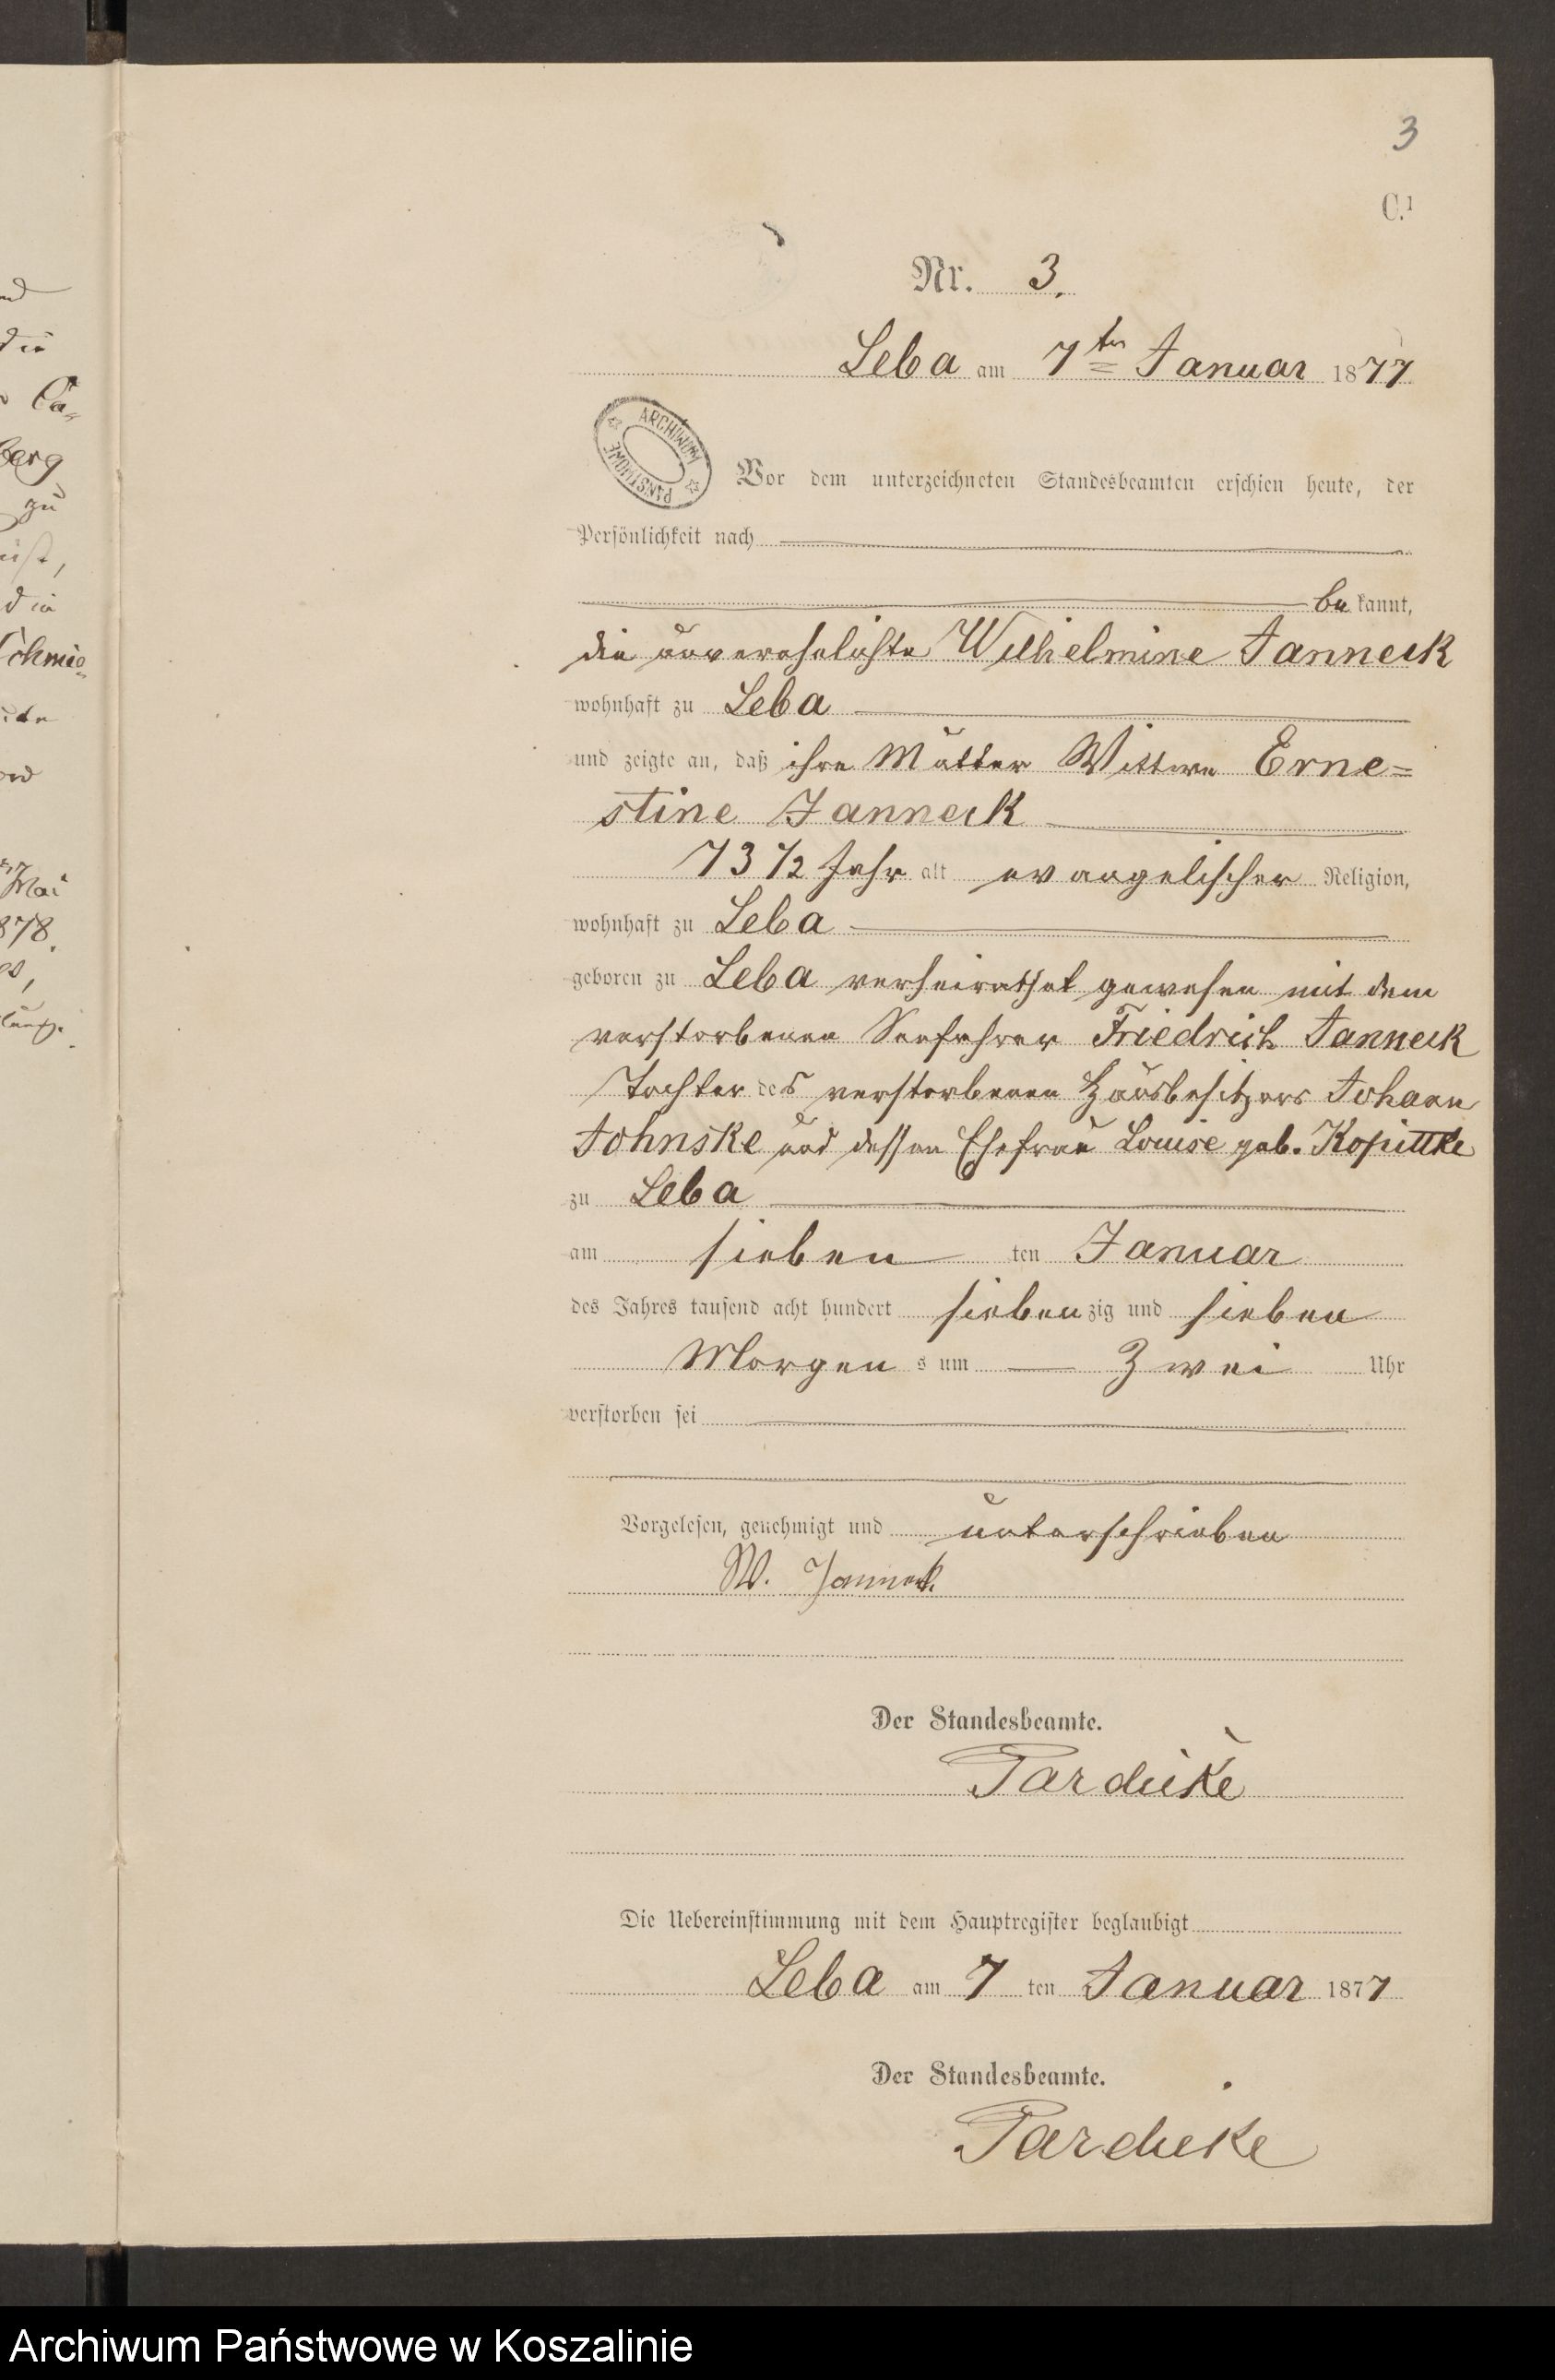 3
C.¹
Nr. 3.
Leba am 7ten Januar 1877
ARCHIWUM PAŃSTWOWE
Vor dem unterzeichneten Standesbeamten erschien heute, der
Persönlichkeit nach
bekannt,
die unverehelichte Wilhelmine Janneck
wohnhaft zu Leba
und zeigte an, daß ihre Mutter Wittwe Erne=
stine Janneck
73 1/2 Jahr alt evangelischer Religion,
wohnhaft zu Leba
geboren zu Leba verheirathet gewesen mit dem
verstorbenen Seefahrer Friedrich Janneck
Tochter des verstorbenen Hausbesitzers Johann
Johnske und dessen Ehefrau Louise geb. Kopittke
zu Leba
am sieben ten Januar
des Jahres tausend acht hundert siebenzig und sieben
Morgens um Zwei Uhr
verstorben sei
Vorgelesen, genehmigt und unterschrieben
W. Janneck.
Der Standesbeamte.
Die Uebereinstimmung mit dem Hauptregister beglaubigt
Leba am 7 ten Januar 1877
Der Standesbeamte.
Archiwum Państwowe w Koszalinie